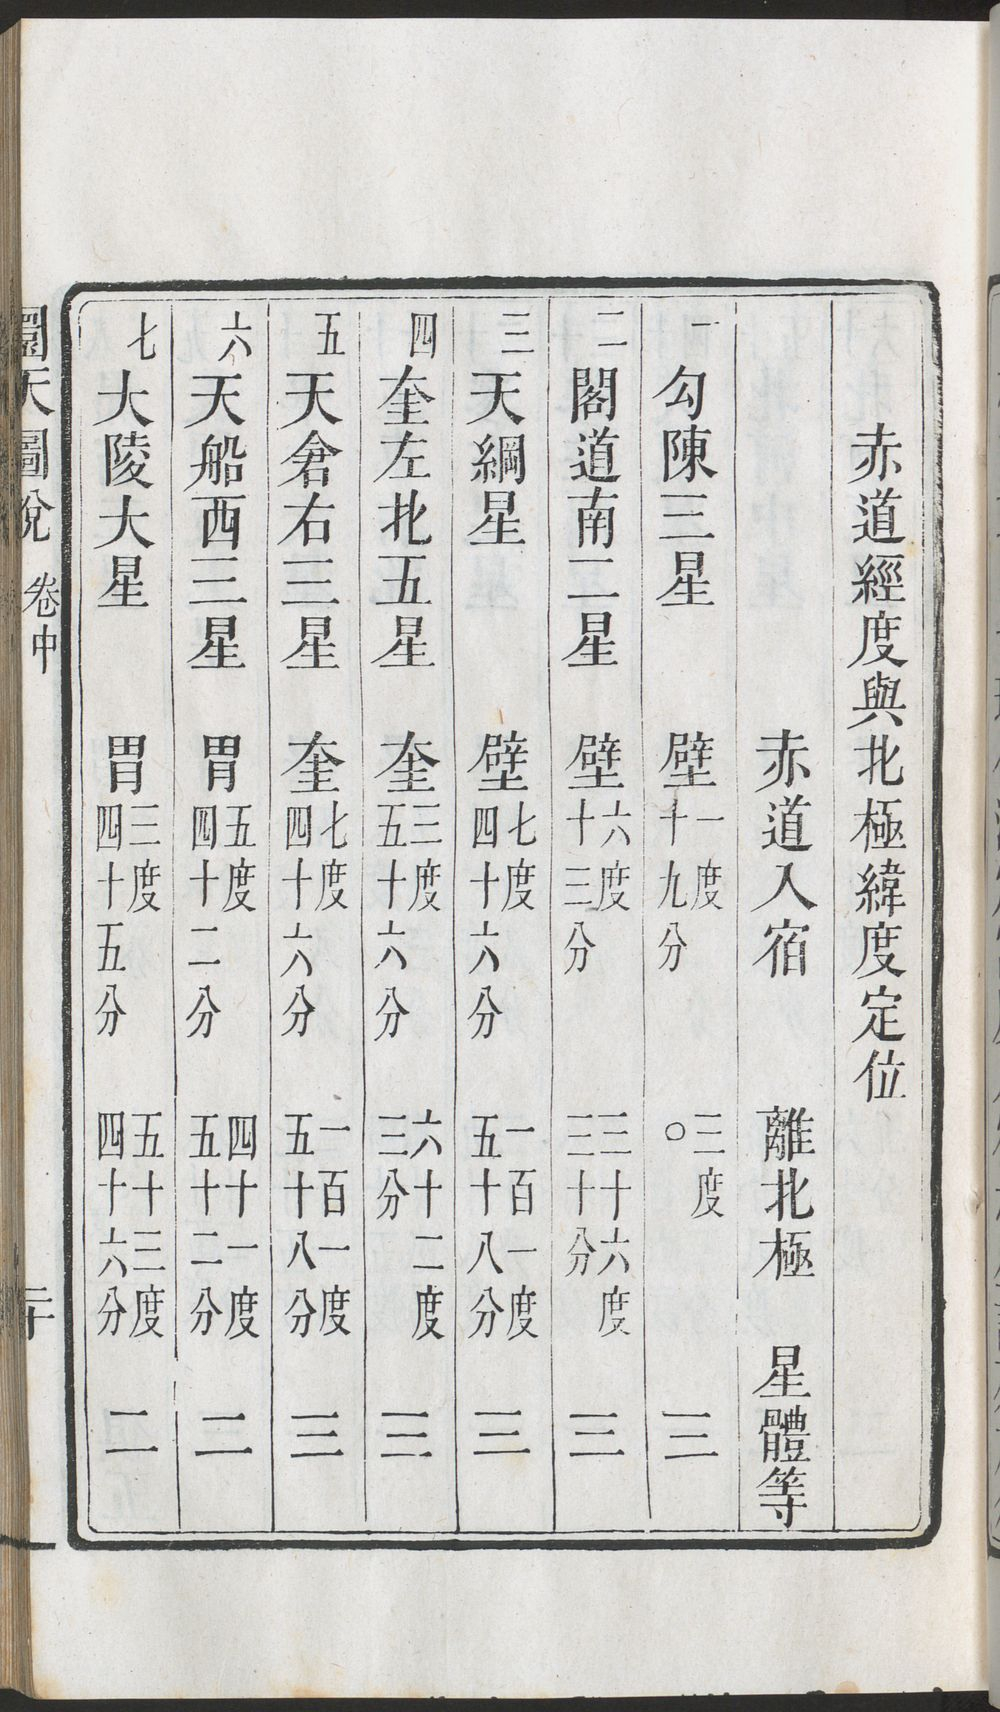 赤道經度與北極緯度定位
赤道入宿 離北極 星體等
一 勾陳三星 壁 一度十九分 三度〇 三
二 閣道南二星 壁 六度十三分 三十六度三十分 三
三 天綱星 壁 七度四十六分 一百一度五十八分 三
四 奎左北五星 奎 三度五十六分 六十二度三分 三
五 天倉右三星 奎 七度四十六分 一百一度五十八分 三
六 天船西三星 胃 五度四十二分 四十一度五十二分 二
七 大陵大星 胃 三度四十五分 五十三度四十六分 二
圜天圖說 卷中 二十